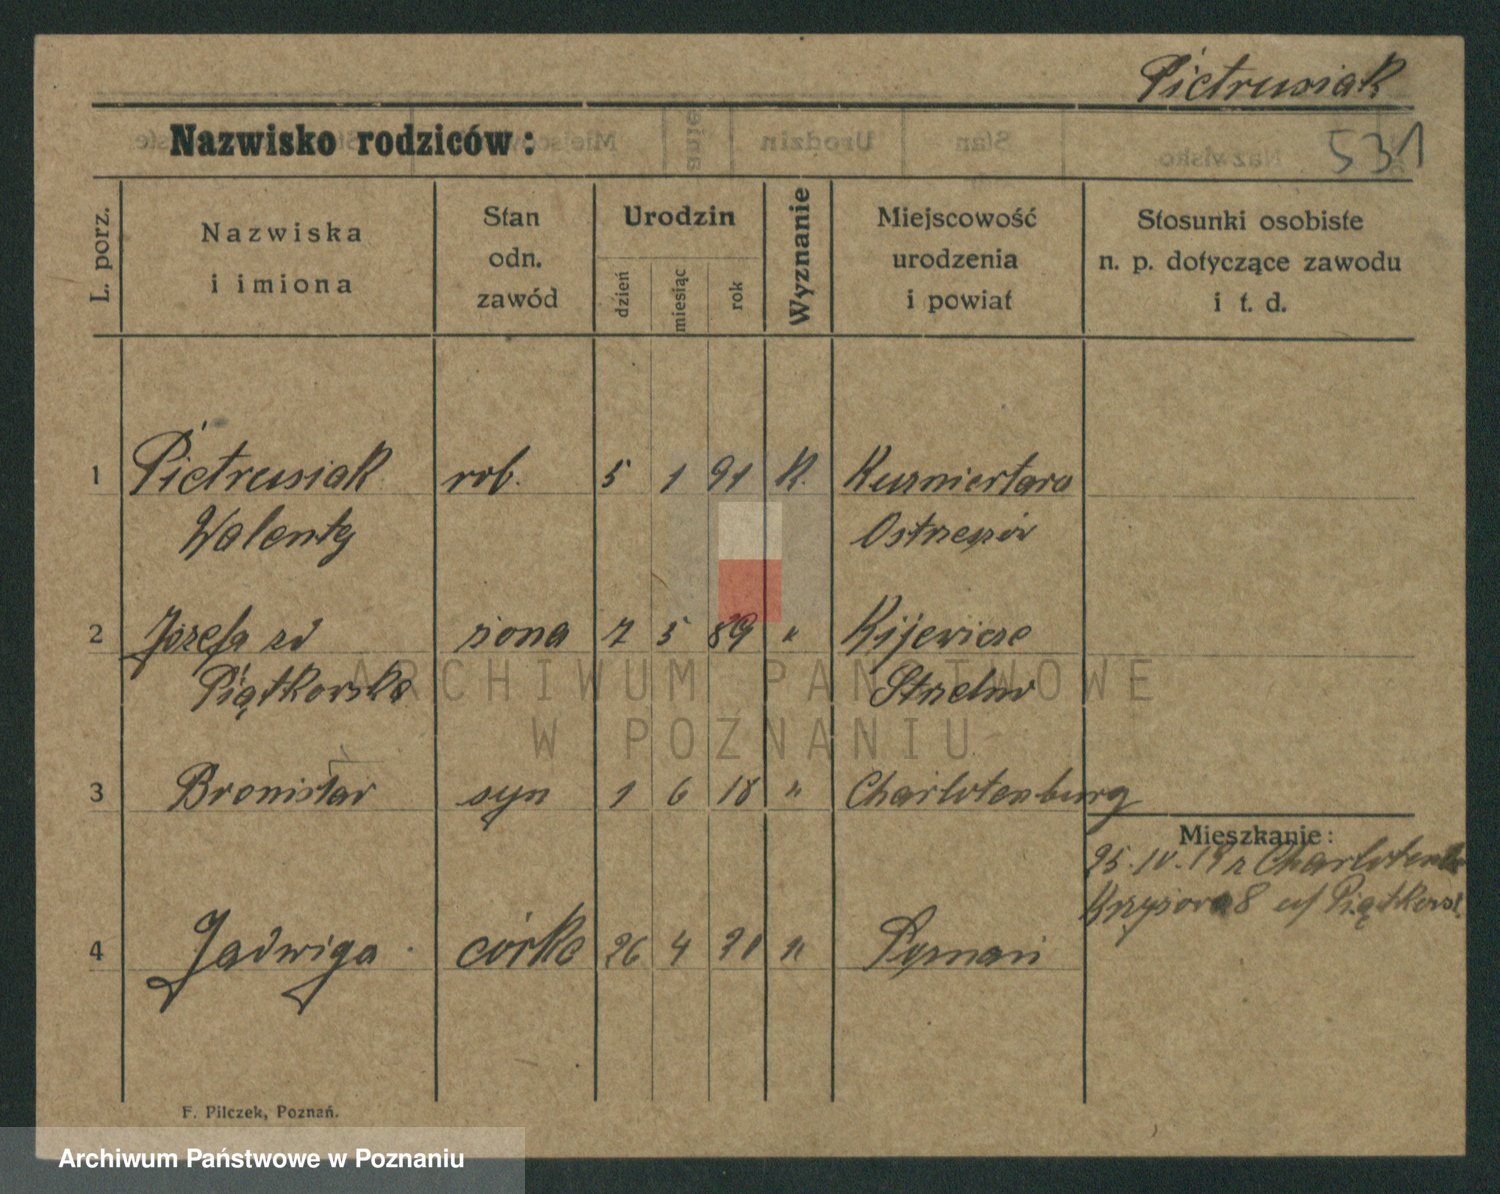 Pietrusiak
Nazwisko rodziców:
531
L. porz.
Nazwiska
i imiona
Stan
odn.
zawód
Urodzin
dzień
miesiąc
rok
Wyznanie
Miejscowość
urodzenia
i powiat
Stosunki osobiste
n. p. dotyczące zawodu
i t. d.
1 Pietrusiak rob. 5 1 91 K.
Walenty
2 Józefa zd żona 7 5 89 "
Piątkowska Strzelno
3 Bronisław syn 1 6 18 " Charlotenburg
Mieszkanie:
25.IV.19 z
Krzyżowa 8
4 Jadwiga córka 26 4 21 " Poznań
F. Pilczek, Poznań.
ARCHIWUM PAŃSTWOWE
W POZNANIU
Archiwum Państwowe w Poznaniu